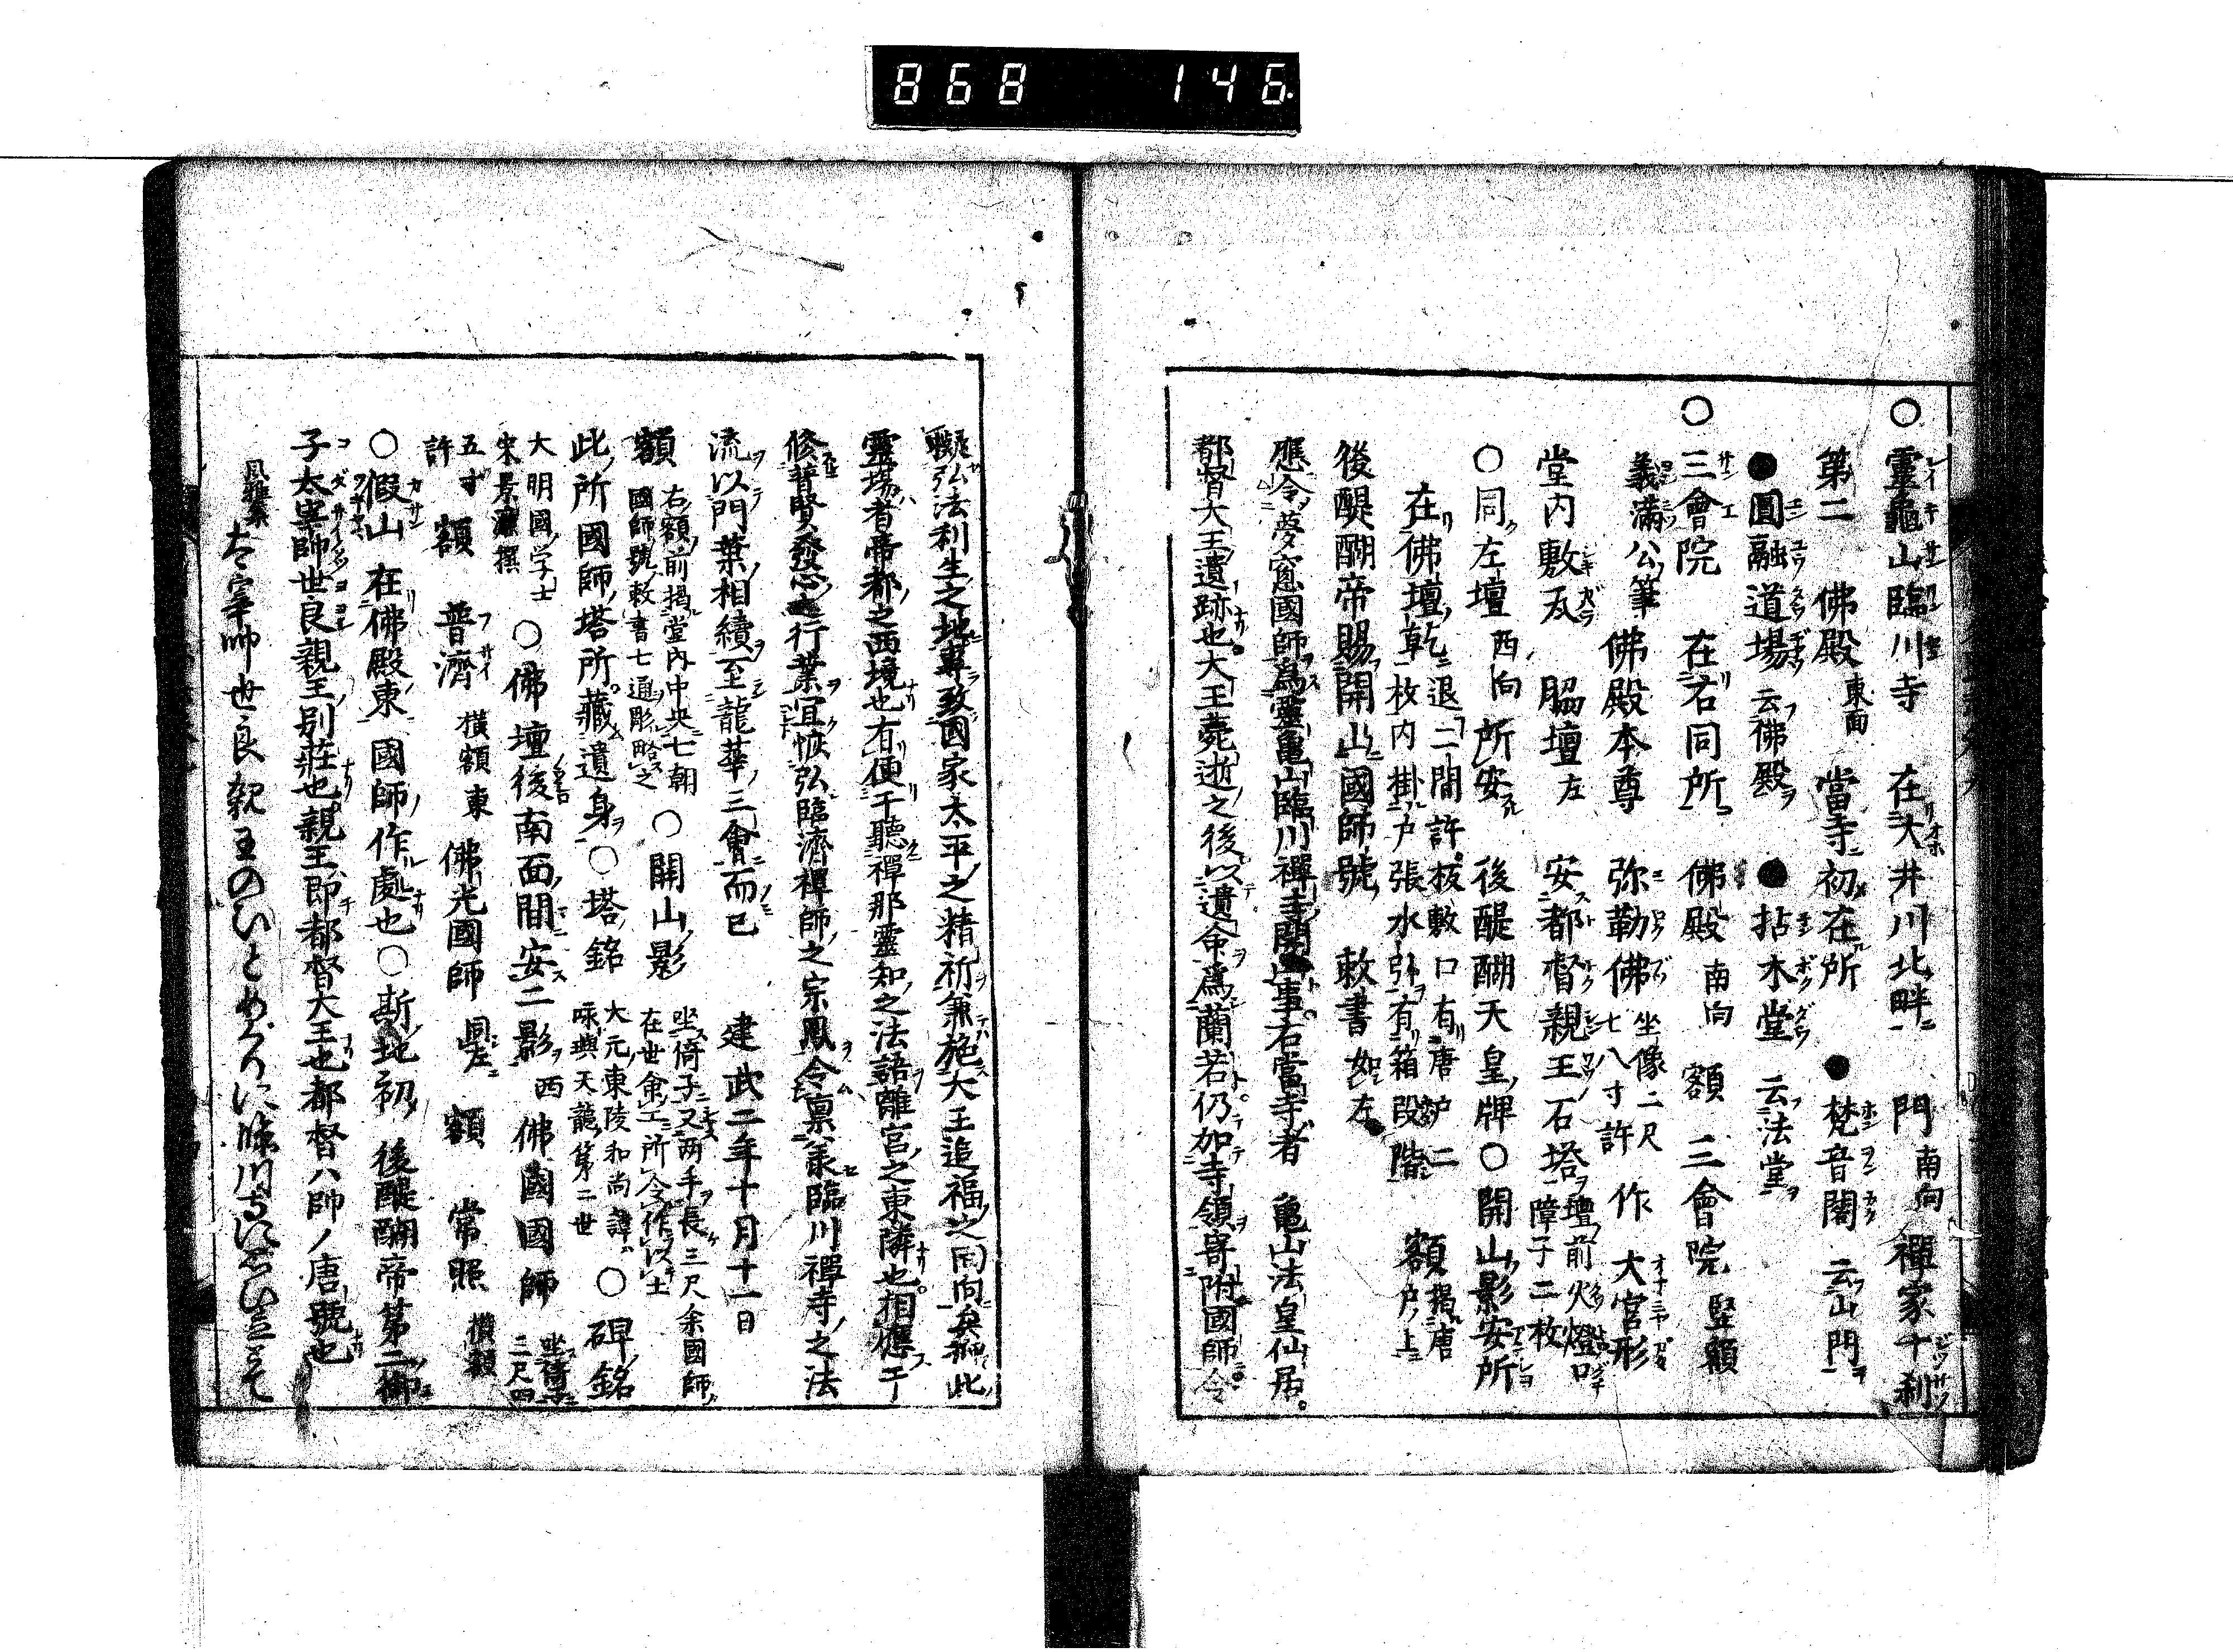 868 146
○靈龜山臨川寺 在大井川北畔 門南向 禪家十刹
第二 佛殿東面 當寺初在所 ●梵音閣云山門
●圓融道場云佛殿 ●拈木堂云法堂
○三會院 在右同所 佛殿南向 額 三會院竪額
義滿公筆 佛殿本尊 弥勒佛坐像二尺七八寸許作 大宮形
堂内敷瓦 脇壇左 安都督親王石塔壇前火燈口障子二枚
○同左壇西向所安 後醍醐天皇牌○開山影安所
在佛壇乾退二間許板敷口有唐戸二枚内掛戸張水引有箱段階 額掲唐戸上
後醍醐帝賜開山國師號 敕書如左
應令夢窓國師爲靈亀山臨川禪寺開山事右當寺者 亀山法皇仙居
都督大王遺跡也大王薨逝之後以遺命爲蘭若仍加寺領寄附國師令
擬弘法利生之地專致國家太平之精祈兼施大王追福之囘向矣抑此
靈場者帝都之西境也有便于聽禪那靈知之法語離宮之東隣也相應于
修普賢發心之行業宜恢弘臨濟禪師之宗風令稟兼臨川禪寺之法
流以門葉相續至龍華三會而已 建武二年十月十一日
額右額前掲堂内中央七朝國師號敕書七通彫略之 ○開山影坐倚子又両手長三尺余國師在世命工所令作以士
此所國師塔所藏遺身○塔銘大元東陵和尚諱永璵天龍第二世 ○碑銘
大明國学士宋景濂撰 ○佛壇後南面間安二影西 佛國國師坐倚子二尺四
五寸許 額 普濟横額東 佛光國師同左 額 常照横額
○假山 在佛殿東 國師作處也○斯地初 後醍醐帝第二御
子太宰帥世良親王別荘也親王即都督大王也都督ハ帥ノ唐號也
風雅集 太宰帥世良親王のひとめぐりに臨川寺に